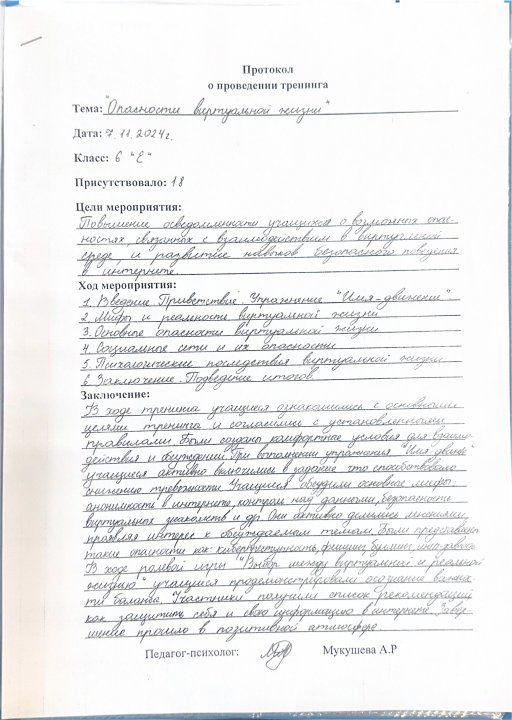 Протокол
о проведении тренинга
Тема: "Опасности виртуальной жизни"
Дата: 7.11.2024г.
Класс: 6 "Е"
Присутствовало: 18
Цели мероприятия:
Повышение осведомленности учащихся о возможных опас-
ностях, связанных с взаимодействием в виртуальной
среде, и развитие навыков безопасного поведения
в интернете.
Ход мероприятия:
1. Введение. Приветствие. Упражнение "Имя-движение".
2. Мифы и реальность виртуальной жизни
3. Основные опасности виртуальной жизни
4. Социальные сети и их опасности
5. Психологические последствия виртуальной жизни
6. Заключение. Подведение итогов.
Заключение:
В ходе тренинга учащиеся ознакомились с основными
целями тренинга и согласились с установленными
правилами. Были созданы комфортные условия для взаимо-
действия и обсуждений. При выполнении упражнения "Имя-движение"
учащиеся активно включились в задание что способствовало
снижению тревожности. Учащиеся обсудили основные мифы:
анонимность в интернете, контроль над данными, безопасность
виртуальных знакомств и др. Они активно делились мнениями,
проявляя интерес к обсуждаемым темам. Были представлены
такие опасности как киберпреступность, фишинг, буллинг,
В ходе ролевой игры "Выбор между виртуальной и реальной
жизнью" учащиеся продемонстрировали осознание важнос-
ти баланса. Участники получили список рекомендаций
как защитить себя и свою информацию в интернете. Завер-
шение прошло в позитивной атмосфере.
Педагог-психолог: Мукушева А.Р